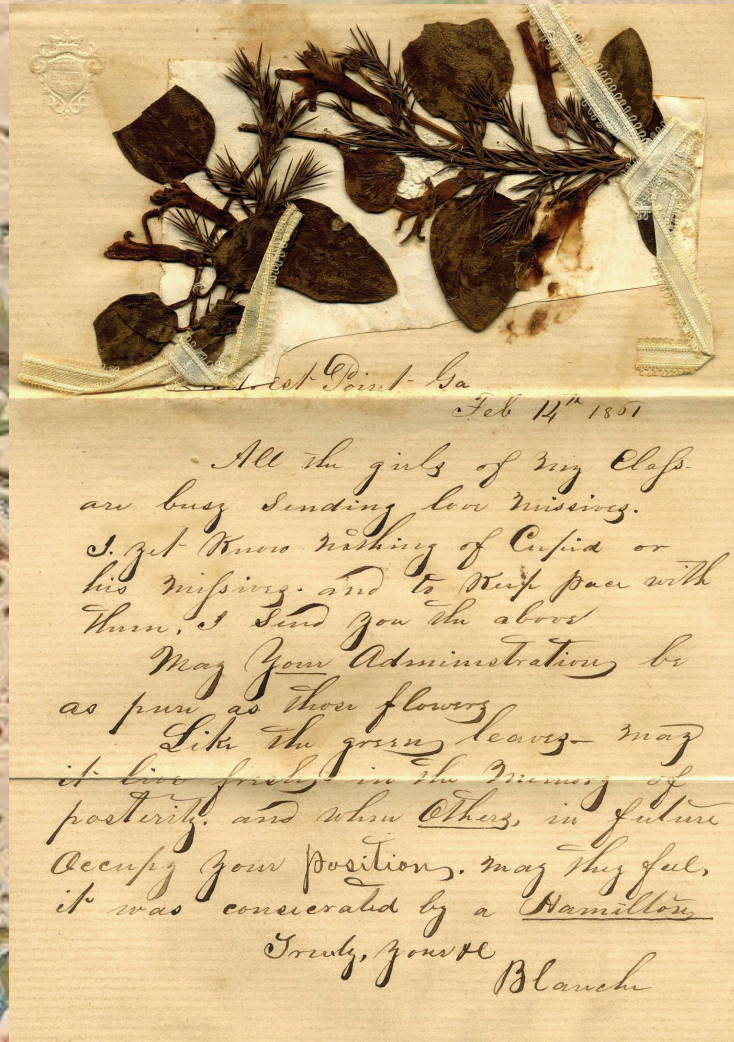 West Point Ga
Feb 14th 1861
All the girls of my Class
are busy sending love missives.
I yet know nothing of Cupid or
his missives. and to keep pace with
them, I send you the above
May Your Administration be
as pure as those flowers
Like the green leaves – may
it live fresh in the memory of
posterity. and when Others, in future
Occupy your position. may they feel,
it was consecrated by a Hamilton
Truly, yours &c
Blanche